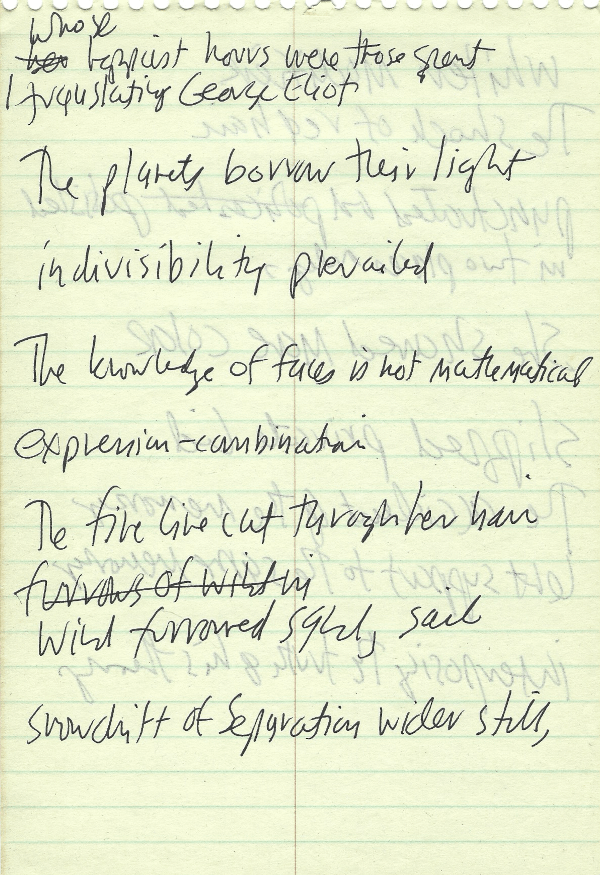 whose
her happiest hours were those spent
translating George Eliot
The planets borrow their light
indivisibility prevailed
The knowledge of faces is not mathematical
expression-combination
The fire line cut through her hair
furrows of wild in
Wild furrowed sail
snowdrift of Separation wider still,